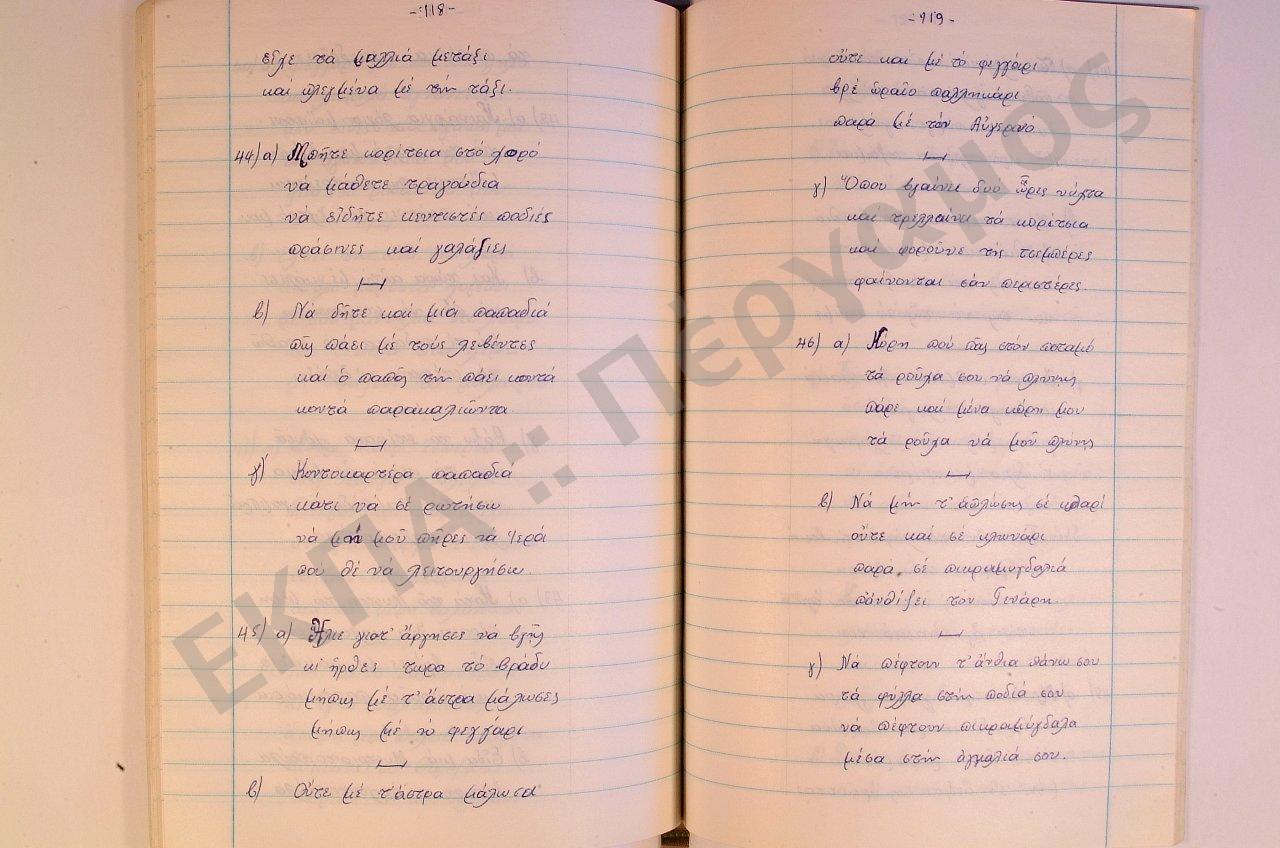 -118-
εἶχε τά μαλλιά μετάξι
καί πλεγμένα μέ τήν τάξι.
44) α) Μπῆτε κορίτσια στό χορό
νά μάθετε τραγούδια
νά εἰδῆτε κεντιστές ποδιές
πράσινες καί γαλάζιες
β) Νά δῆτε καί μιά παπαδιά
πῶς πάει μέ τούς λεβέντες
καί ὁ παπᾶς τήν πάει κοντά
κοντά παρακαλιῶντα
γ) Κοντοκαρτέρα παπαδιά
κάτι νά σέ ρωτήσω
νά μήν μοῦ πῆρες τά Ἱερά
πού θέ νά λειτουργήσω
45) α) Ἥλιε γιατ' ἄργησες νά βγῆς
κι ἦρθες τώρα τό βράδυ
μήπως μέ τ' ἄστρα μάλωσες
μήπως μέ τό φεγγάρι
β) Οὔτε μέ τ' ἄστρα μάλωσα
-119-
οὔτε καί μέ τό φεγγάρι
βρέ ὡραῖο παλληκάρι
παρά μέ τόν Αὐγερινό
γ) Ὅπου βγαίνει δυο ὧρες νύχτα
καί τρελλαίνει τά κορίτσια
καί φοροῦνε τίς τσεμπέρες
φαίνονται σάν περιστέρες
46) α) Κόρη πού πᾶς στόν ποταμό
τά ροῦχα σου νά πλύνης
πάρε καί μένα κόρη μου
τά ροῦχα νά μοῦ πλύνης
β) Νά μήν τ' ἁπλώσης σέ κλαρί
οὔτε καί σέ κλωνάρι
παρα σέ πικραμυγδαλιά
π' ἀνθίζει τον Γενάρη.
γ) Νά πέφτουν τ' ἄνθια πάνω σου
τά φύλλα στήν ποδιά σου
νά πέφτουν πικραμύγδαλα
μέσα στήν ἀγκαλιά σου.
ΕΚΠΑ :: Πέργαμος